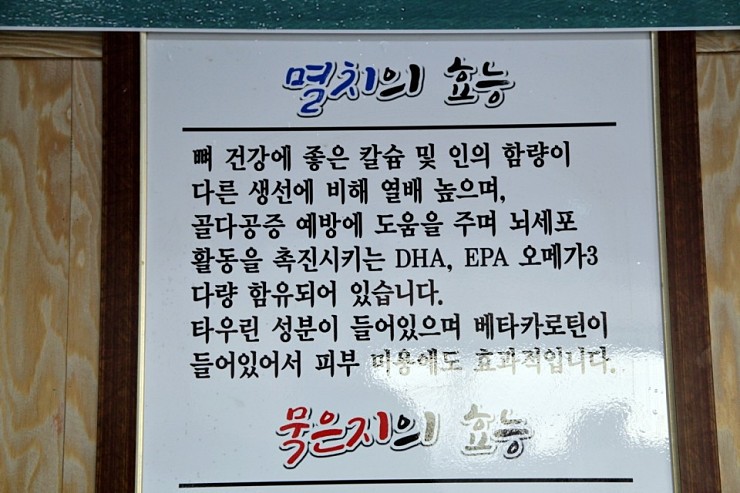 멸치의 효능
뼈 건강에 좋은 칼슘 및 인의 함량이
다른 생선에 비해 열배 높으며,
골다공증 예방에 도움을 주며 뇌세포
활동을 촉진시키는 DHA, EPA 오메가3
다량 함유되어 있습니다.
타우린 성분이 들어있으며 베타카로틴이
들어있어서 피부 미용에도 효과적입니다.
묵은지의 효능